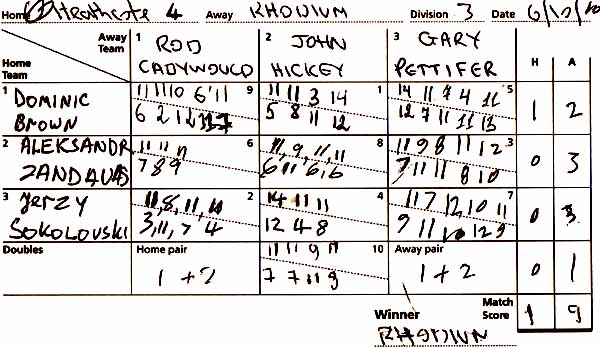 Home Heathcote 4 Away RHODIUM Division 3 Date 6/10/10
Away Team 1 ROD CADYWOULD 2 JOHN HICKEY 3 GARY PETTIFER H A
Home Team
1 DOMINIC BROWN 9 1 5 1 2
6 2 12 5 8 11 12 12 7 11 11 13
2 ALEKSANDR 11 11 11 6 11, 9, 11, 11 8 11 9 8 11 12 3 0 3
7 8 9 6 11 6, 6 7 11 11 8 10
3 JERZY SOKOLOVSKI 11, 8, 11, 2 14 11 11 4 11 7 12, 10 11 7 0 3
3, 11, 7 4 12 4 8 9 11 12 9
Doubles Home pair 11 11 9 11 10 Away pair
1 + 2 7 7 11 9 1 + 2 0 1
Winner Match Score 1 9
RHODIUM